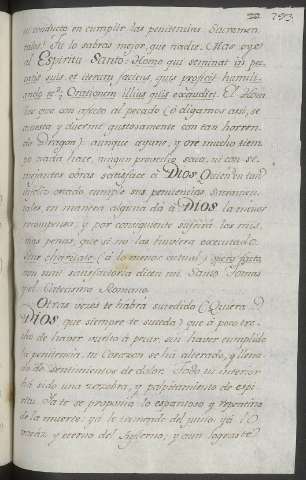 22 793
tu conducto en cumplir las penitencias Sacramen-
tales? Tu lo sabras mejor, que nadie. Mas oye
al Espiritu Santo: Homo qui seminat in pec-
catis suis, et iterum faciens, quis proficit humili-
ando se? Orationem illius quis exaudiet? El Hom-
bre que con afecto al pecado (ô digamos assi, se
acuesta y duerme gustosamente con tan horren-
do Dragon) aunque ayune, y ore mucho tiem-
po nada hace, ningun provecho saca, ni con se-
mejantes obras satisface â DIOS. Quien en tan
infeliz estado cumple sus penitencias Sacramen-
tales, en manera alguna dâ â DIOS la menor
recompensa, y por consiguiente sufrirâ las mis-
mas penas, que si no las huviera executado.
Sine charitate (â lo menos actual) opera facta
non sunt satisfactoria dicen mi Santo Tomas
y el Catecismo Romano.
Otras vezes te habrâ sucedido (Quiera
DIOS, que siempre te suceda) que â poco tre-
cho de haver vuelto â pecar sin haver cumplido
la penitencia, tu Corazon se ha alterado, y llena-
do de sentimientos de dolor. Todo tu interior
hâ sido una zozobra, y palpitamiento de espi-
ritu. Ya te se proponia lo espantoso y repentino
de la muerte, ya lo tremendo del juicio, yâ lo
voraz y eterno del Infierno, y aun lograste